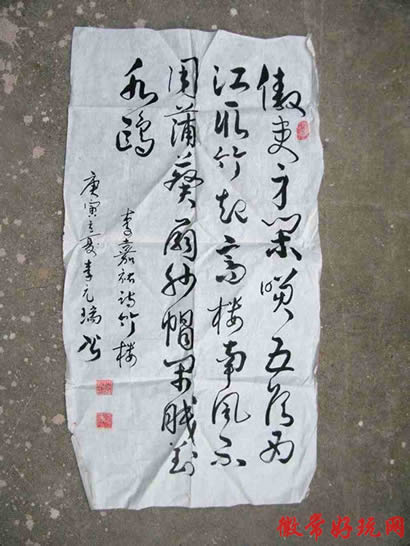 傲吏身閑笑五侯西
江取竹起高楼南风不
用蒲葵扇纱帽閑眠对
水鸥
李嘉祐诗竹楼
庚寅夏李元瑞书
徽常好玩网